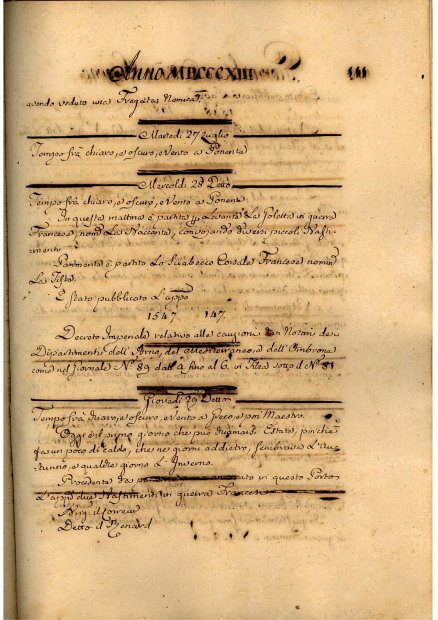 Anno MDCCCXIII
avendo veduto una Fregata Nemica.
Martedì 27 Luglio
Tempo frà chiaro, e oscuro, e Vento a Ponente
Mercoldì 28 Detto
Tempo frà chiaro, e oscuro, e Vento a Ponente
In questa mattina è partita p Levante La Goletta in guerra
Francese, nom La convojando diversi piccoli Basti-
menti
Parimente è partito Lo Sciabecco Corsale Francese nom
La
È stato pubblicato L'app
1547 147.
Decreto Imperiale relativo alle cauzioni dei Notari dei
Dipartimenti dell'Arno, del Mediterraneo, e dell'Ombrone
come nel Giornale N° 89 dall a fino al 6, in Filza sotto il N° 81
Giovedì 29 Detto
Tempo frà chiaro, e oscuro, e Vento a Greco, e poi Maestro.
Oggi è il primo giorno che può chiamarsi Estate, poichè
fa un poco di caldo, che nei giorni addietro, sembrava L'Au-
tunno, e qualche giorno L'Inverno.
Procedente da in questo Porto
L'app due Bastimenti in guerra Francesi
Brig il
Detto il Renard